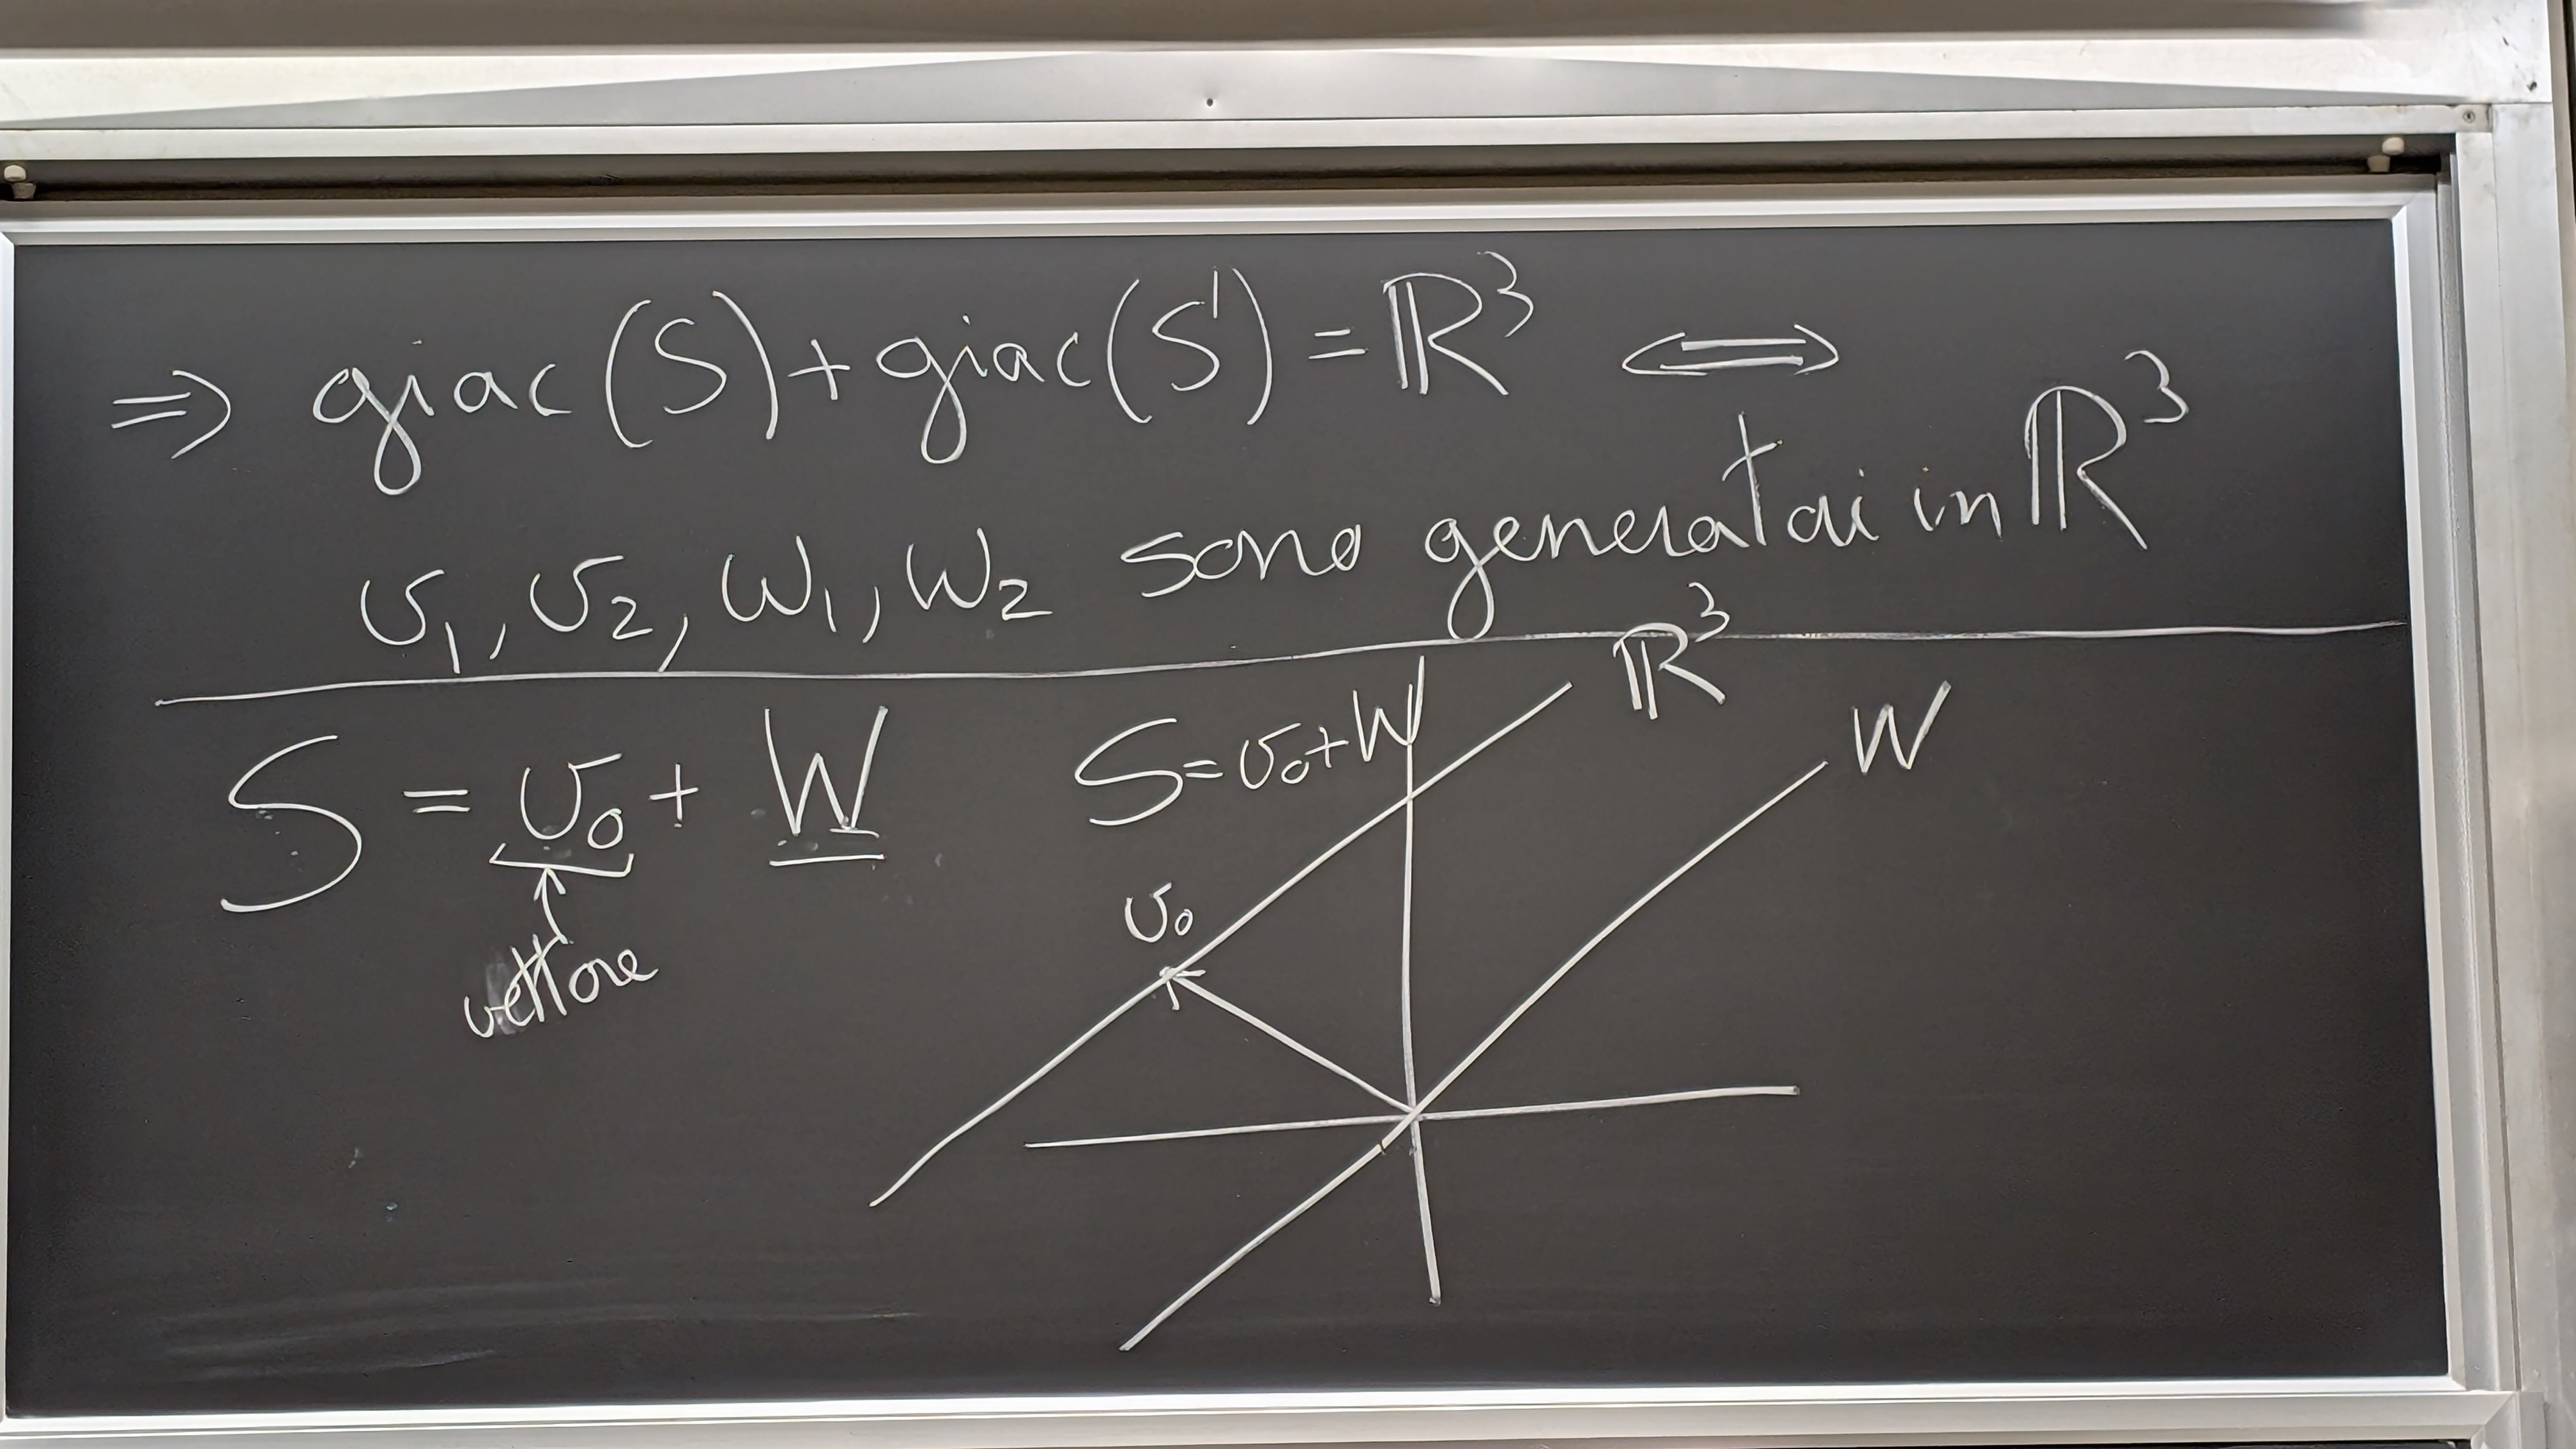 ⇒ giac(S) + giac(S') = ℝ³ ⟺
v₁, v₂, w₁, w₂ sono generatoi in ℝ³
S = v₀ + W
vettore
S = v₀ + W
ℝ³
W
v₀